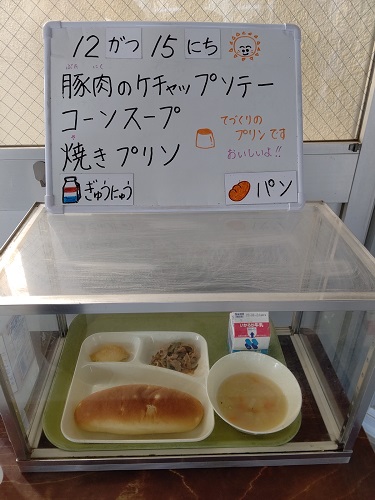 12がつ15にち
豚肉のケチャップソテー
ぶた にく
コーンスープ
焼きプリン
や
てづくりの
プリンです
おいしいよ!!
ぎゅうにゅう
パン